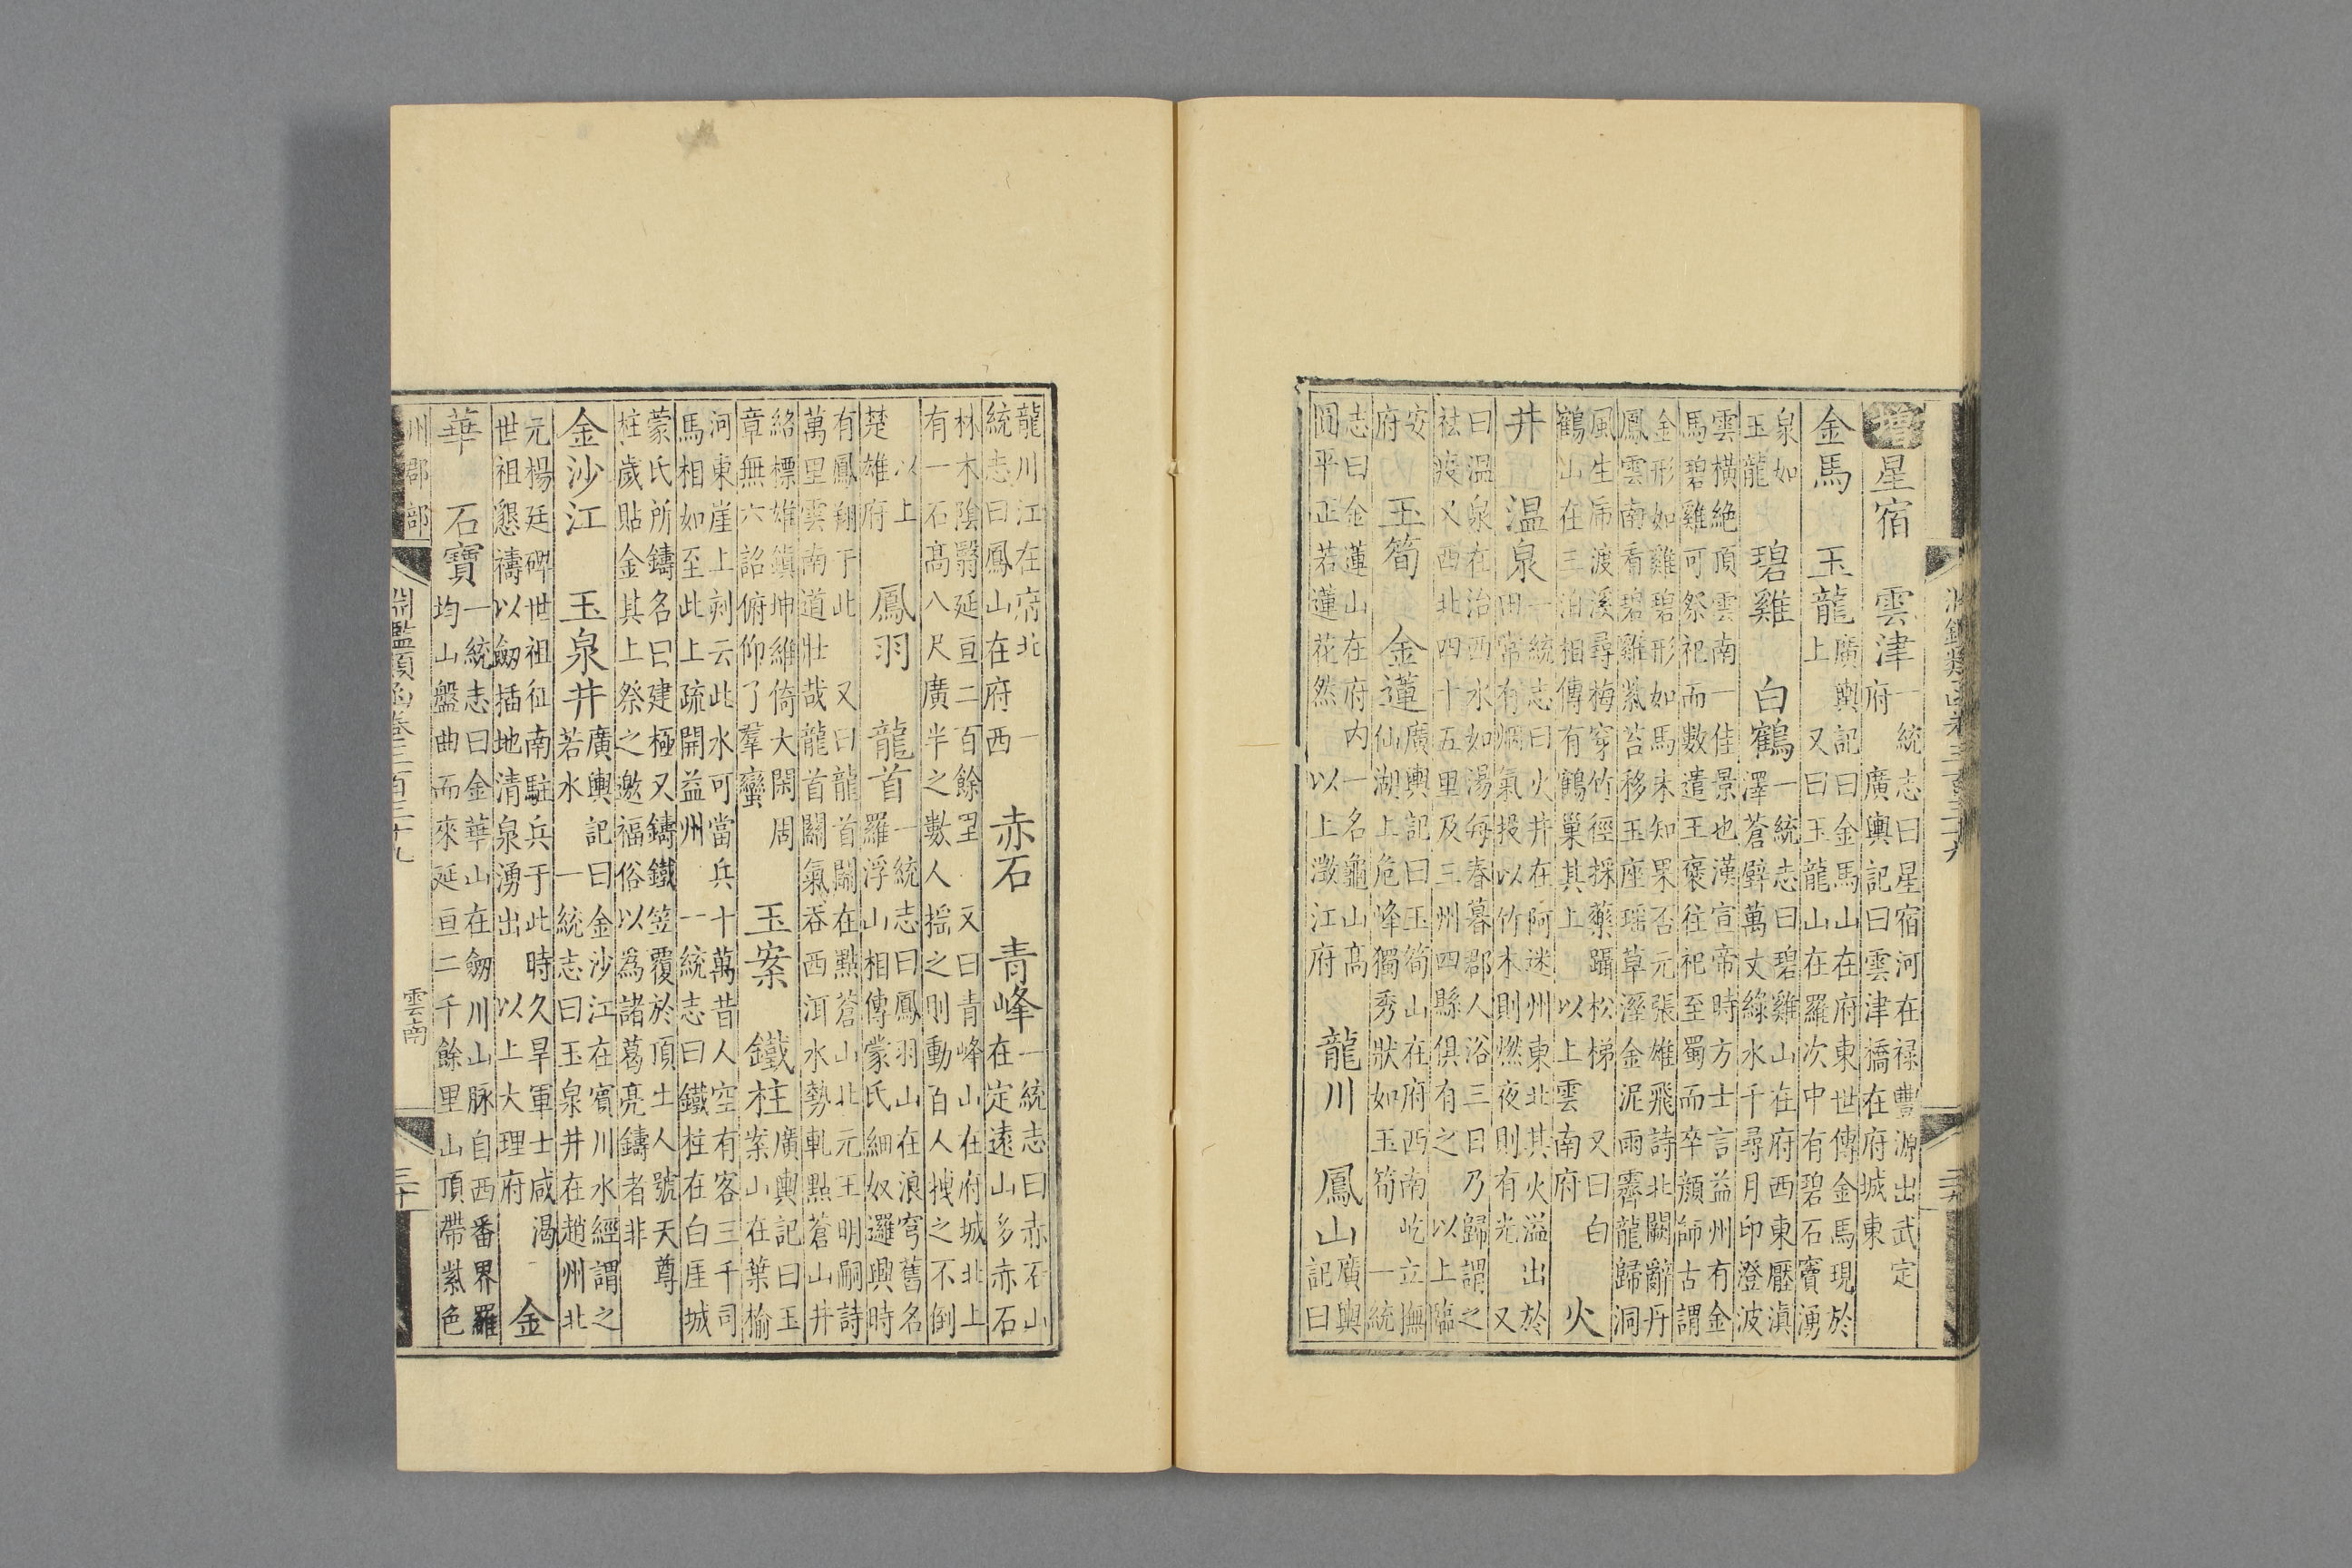 增星宿　雲津一統志曰星宿河在祿豐源出武定
府　廣輿記曰雲津橋在府城東
金馬　玉龍廣輿記曰金馬山在府東世傳金馬現於
上　又曰玉龍山在羅次中有碧石竇湧
泉如
玉龍　碧雞　白鶴一統志曰碧雞山在府西東壓滇
澤蒼壁萬丈綠水千尋月印澄波
雲橫絕頂雲南一佳景也漢宣帝時方士言益州有金
馬碧雞可祭祀而數遣王褒往祀至蜀而卒顏師古謂
金形如雞碧形如馬未知果否元張雄飛詩北闕辭丹
鳳雲南看碧雞紫苔移玉座瑶草溼金泥雨霽龍歸洞
風生虎渡溪尋梅穿竹徑採藥躡松梯　又曰白
鶴山在三泊相傳有鶴巢其上　以上雲南府　火
井　温泉一統志曰火井在阿迷州東北其火溢出於
田常有烟氣投以竹木則燃夜則有光　又
曰温泉在治西水如湯每春暮郡人浴三日乃歸謂之
祛疾又西北四十五里及三州四縣俱有之　以上臨
安
府　玉筍　金蓮廣輿記曰玉筍山在府西南屹立撫
仙湖上危峰獨秀狀如玉筍　一統
志曰金蓮山在府内一名龜山高
圓平正若蓮花然　以上澂江府　龍川　鳳山廣輿
記曰
龍川江在府北　一
統志曰鳳山在府西　赤石　青峰一統志曰赤石山
在定遠山多赤石
林木陰翳延亘二百餘里　又曰青峰山在府城北上
有一石高八尺廣半之數人摇之則動百人拽之不倒
以上
楚雄府　鳳羽　龍首一統志曰鳳羽山在浪穹舊名
羅浮山相傳蒙氏細奴邏興時
有鳳翔于此　又曰龍首關在點蒼山北元王明嗣詩
萬里雲南道壯哉龍首關氣吞西洱水勢軋點蒼山井
絡標雄鎮坤維倚大閑周
章無六詔俯仰了羣蠻　玉案　鐵柱廣輿記曰玉
案山在葉榆
河東崖上刻云此水可當兵十萬昔人空有客三千司
馬相如至此上疏開益州　一統志曰鐵柱在白厓城
蒙氏所鑄名曰建極又鑄鐵笠覆於頂土人號天尊
柱歲貼金其上祭之邀福俗以爲諸葛亮鑄者非
金沙江　玉泉井廣輿記曰金沙江在賓川水經謂之
若水　一統志曰玉泉井在趙州北
元楊廷碑世祖征南駐兵于此時久旱軍士咸渴
世祖懇禱以劒插地清泉湧出　以上大理府　金
華　石寶一統志曰金華山在劒川山脉自西番界羅
均山盤曲而來延亘二千餘里山頂帶紫色
川郡部　淵鑑類函卷三百三十九　雲南　三十